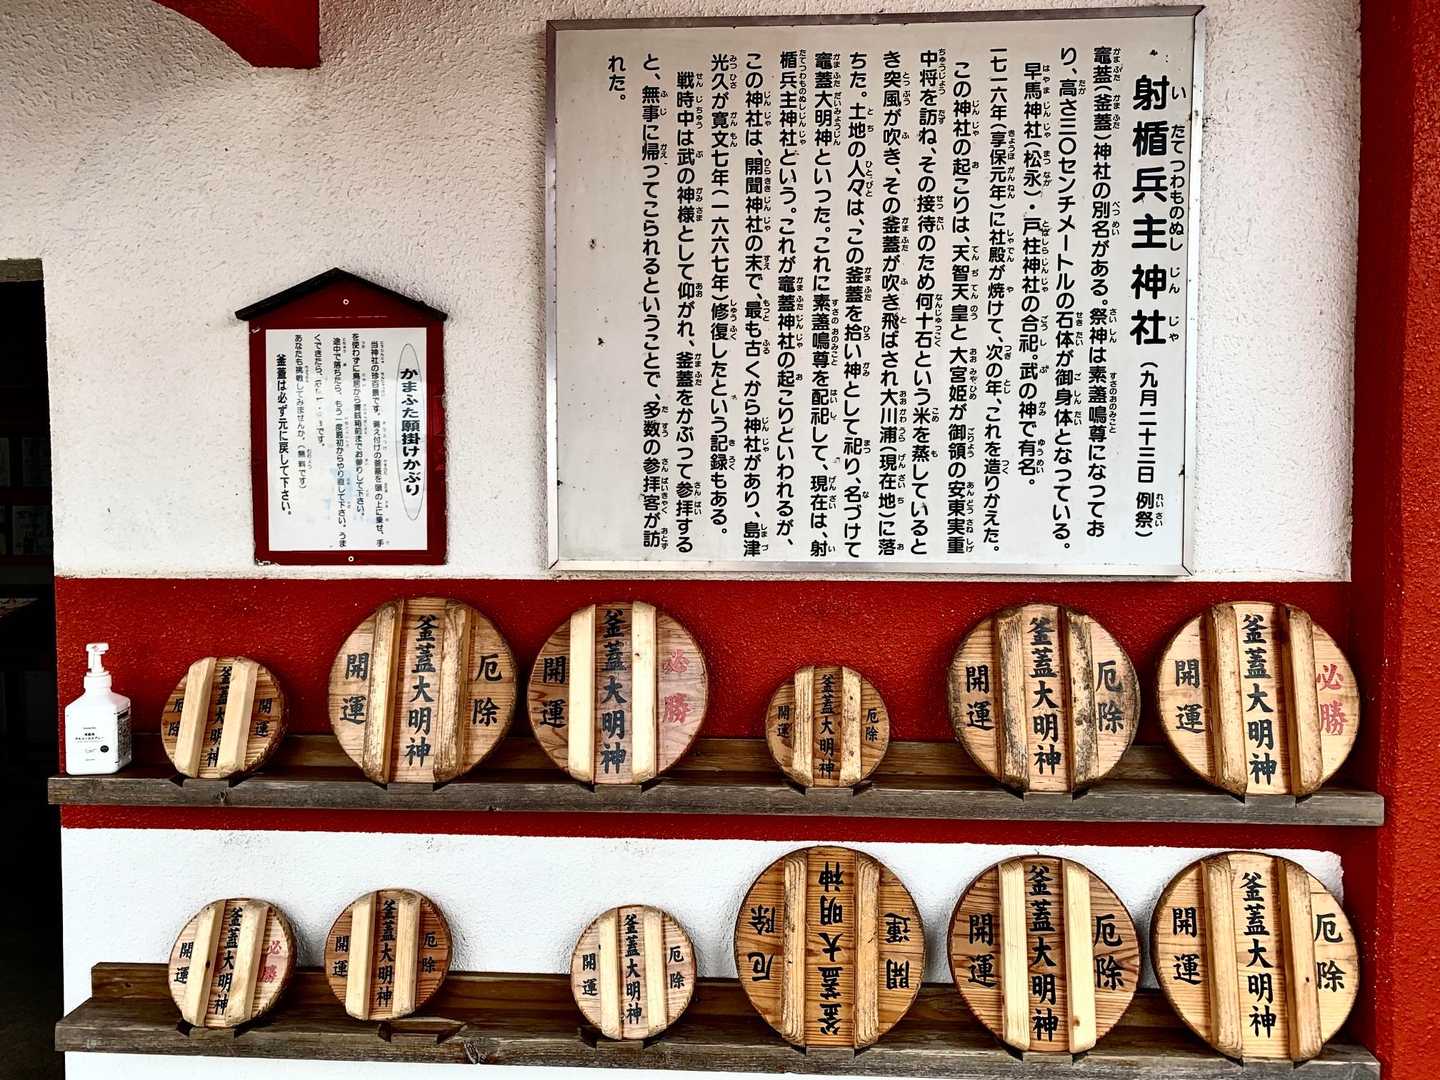 射楯兵主神社(九月二十三日 例祭)
竈蓋(釜蓋)神社の別名がある。祭神は素盞鳴尊になってお
り、高さ三〇センチメートルの石体が御身体となっている。
早馬神社(松永)・戸柱神社の合祀。武の神で有名。
一七一六年(享保元年)に社殿が焼けて、次の年、これを造りかえた。
この神社の起こりは、天智天皇と大宮姫が御領の安東実重
中将を訪ね、その接待のため何十石という米を蒸していると
き突風が吹き、その釜蓋が吹き飛ばされ大川浦(現在地)に落
ちた。土地の人々は、この釜蓋を拾い神として祀り、名づけて
竈蓋大明神といった。これに素盞鳴尊を配祀して、現在は、射
楯兵主神社という。これが竈蓋神社の起こりといわれるが、
この神社は、開聞神社の末で、最も古くから神社があり、島津
光久が寛文七年(一六六七年)修復したという記録もある。
戦時中は武の神様として仰がれ、釜蓋をかぶって参拝する
と、無事に帰ってこられるということで、多数の参拝客が訪
れた。
かまふた願掛けかぶり
当神社の珍百景です。備え付けの釜蓋を頭の上に乗せ、手
を使わずに鳥居から賽銭箱前までお参りして下さい。
途中で落ちたら、もう一度最初からやり直して下さい。うま
くできたら、
です。
あなたも挑戦してみませんか。(無料です)
釜蓋は必ず元に戻して下さい。
厄除 釜蓋大明神 開運
開運 釜蓋大明神 厄除
開運 釜蓋大明神 必勝
開運 釜蓋大明神 厄除
開運 釜蓋大明神 厄除
開運 釜蓋大明神 必勝
開運 釜蓋大明神 必勝
開運 釜蓋大明神 厄除
開運 釜蓋大明神 厄除
開運 釜蓋大明神 厄除
開運 釜蓋大明神 厄除
開運 釜蓋大明神 厄除